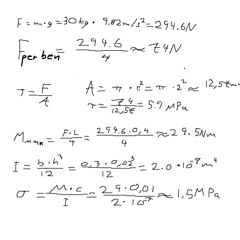 F = m · g = 30 kg · 9.82 m/s² = 294.6 N
F per ben = 294.6 / 4 ≈ 74 N
τ = F / A    A = π · r² = π · 2² ≈ 12,5
τ = 74 / 12,5 = 5.9 MPa
M max = F·L / 4 = 294.6·0,4 / 4 ≈ 29.5 Nm
I = b·h³ / 12 = 0.3·0,02³ / 12 = 2.0 · 10⁻⁷ m⁴
σ = M·c / I = 29·0,01 / 2·10⁻⁷ ≈ 1,5 MPa